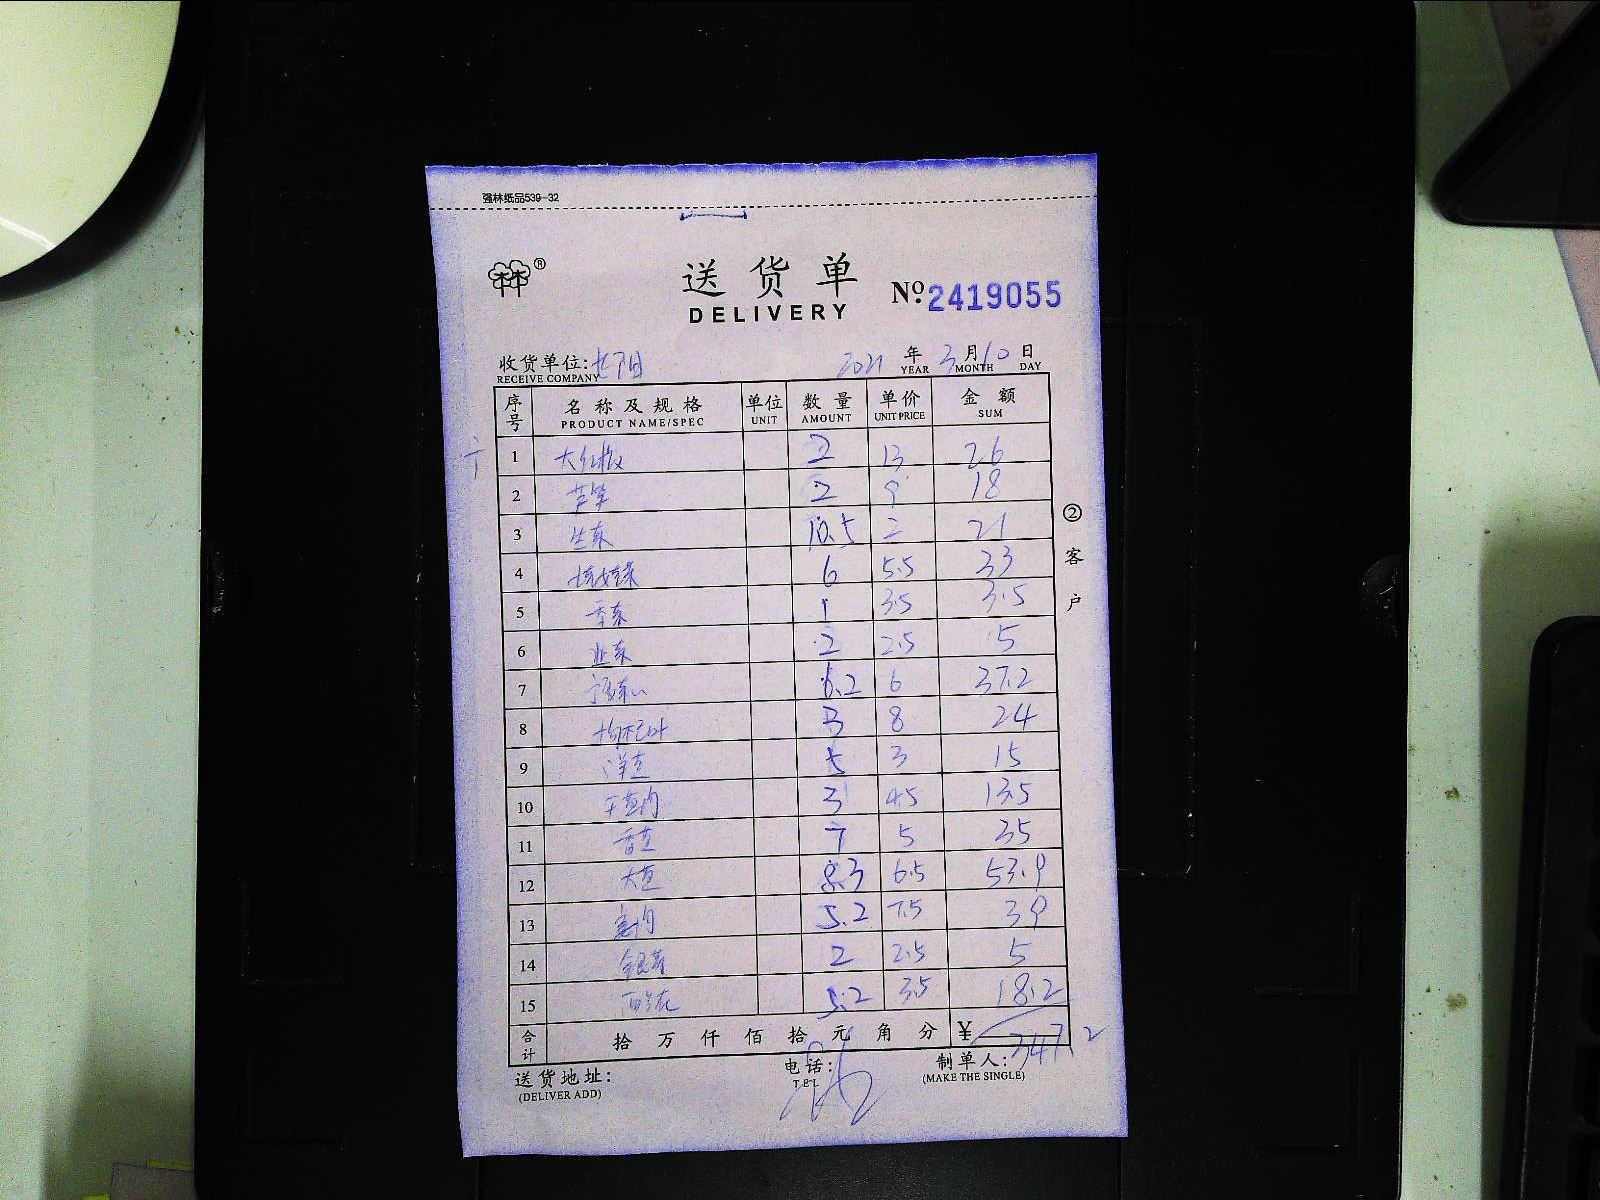 强林纸品539-32
送货单
DELIVERY
№ 2419055
收货单位: 2021 年 3 月 10 日
RECEIVE COMPANY YEAR MONTH DAY
序号 名称及规格 单位 数量 单价 金额
PRODUCT NAME/SPEC UNIT AMOUNT UNIT PRICE SUM
1 大红椒 2 13 26
2 芦笋 2 9 18
3 生菜 10.5 2 21
4 娃娃菜 6 5.5 33
5 香菜 1 3.5 3.5
6 韭菜 2 2.5 5
7 6.2 6 37.2
8 枸杞叶 3 8 24
9 洋葱 5 3 15
10 3 4.5 13.5
11 香芹 7 5 35
12 8.3 6.5 53.9
13 5.2 7.5 39
14 2 2.5 5
15 西兰花 5.2 3.5 18.2
合计 拾 万 仟 佰 拾 元 角 分 ¥ 347.2
送货地址: 电话: 制单人:
(DELIVER ADD) TEL (MAKE THE SINGLE)
②客户